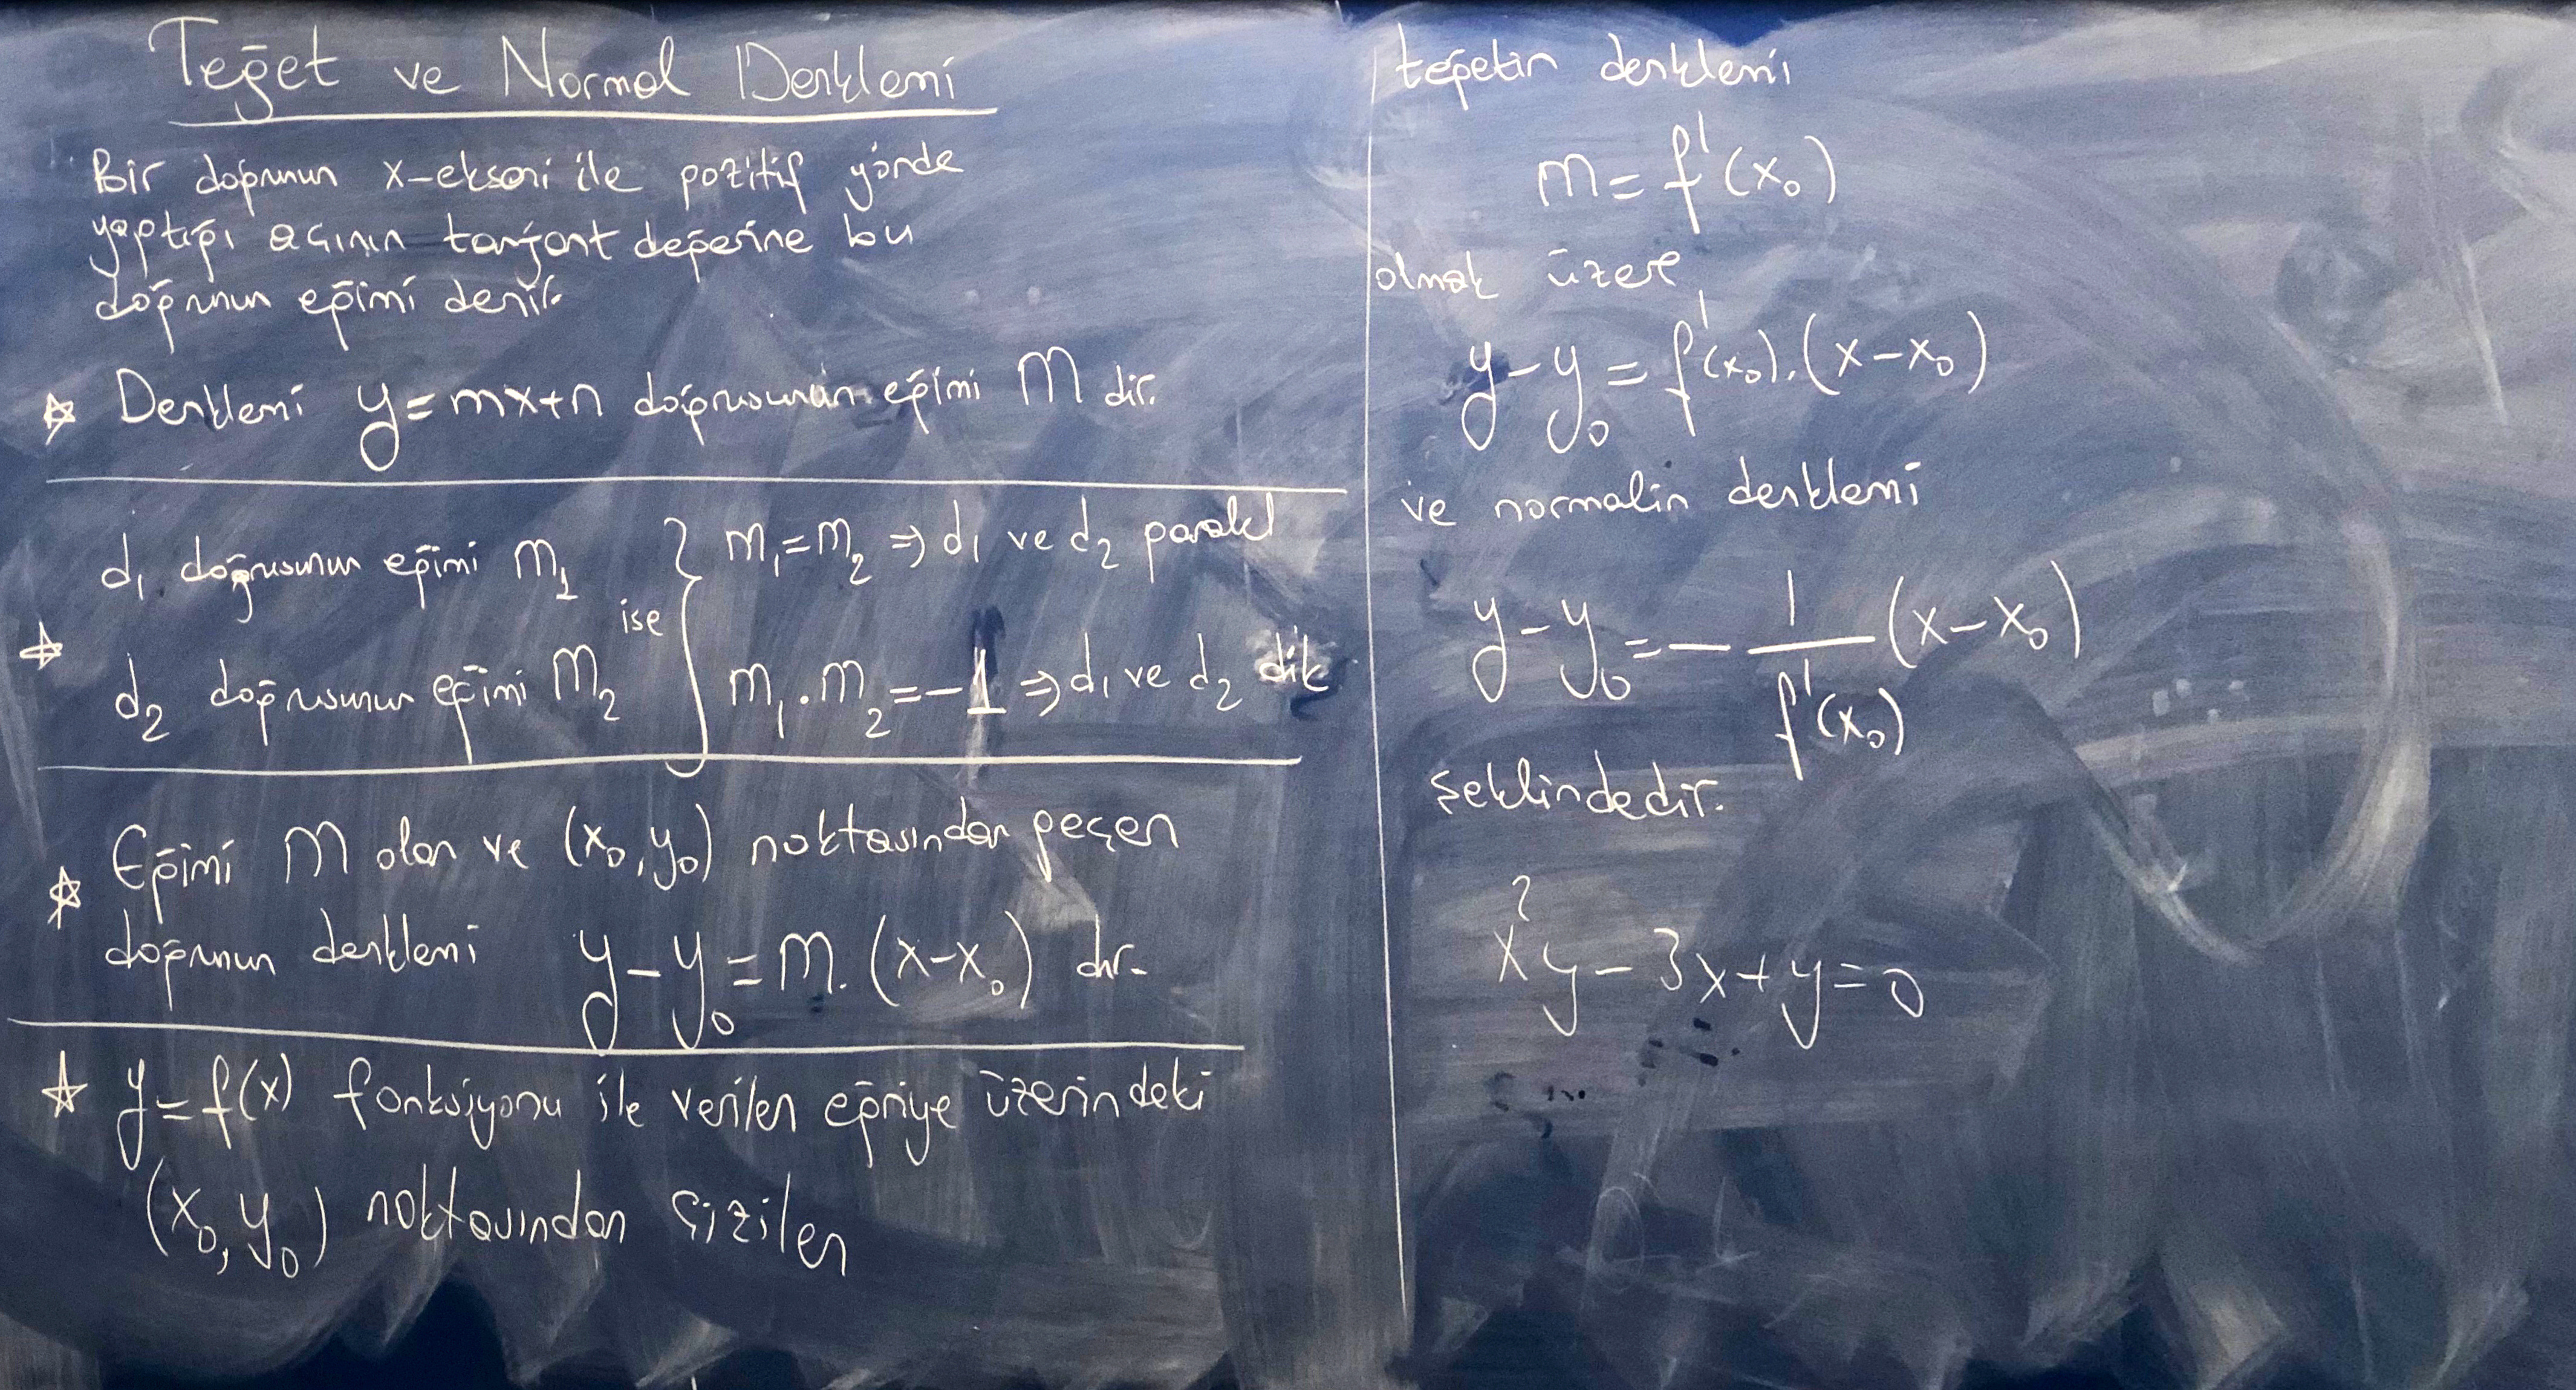 Teğet ve Normal Denklemi
Bir doğrunun x-ekseni ile pozitif yönde
yaptığı açının tanjant değerine bu
doğrunun eğimi denir.
☆ Denklemi y=mx+n doğrusunun eğimi m dir.
d₁ doğrusunun eğimi m₁
☆ ise
d₂ doğrusunun eğimi m₂
m₁=m₂ ⇒ d₁ ve d₂ paralel
m₁.m₂=-1 ⇒ d₁ ve d₂ dik
☆ Eğimi m olan ve (x₀,y₀) noktasından geçen
doğrunun denklemi y-y₀=m.(x-x₀) dır.
☆ y=f(x) fonksiyonu ile verilen eğriye üzerindeki
(x₀,y₀) noktasından çizilen
teğetin denklemi
m=f'(x₀)
olmak üzere
y-y₀=f'(x₀).(x-x₀)
ve normalin denklemi
y-y₀=-1/f'(x₀) (x-x₀)
şeklindedir.
x²y-3x+y=0